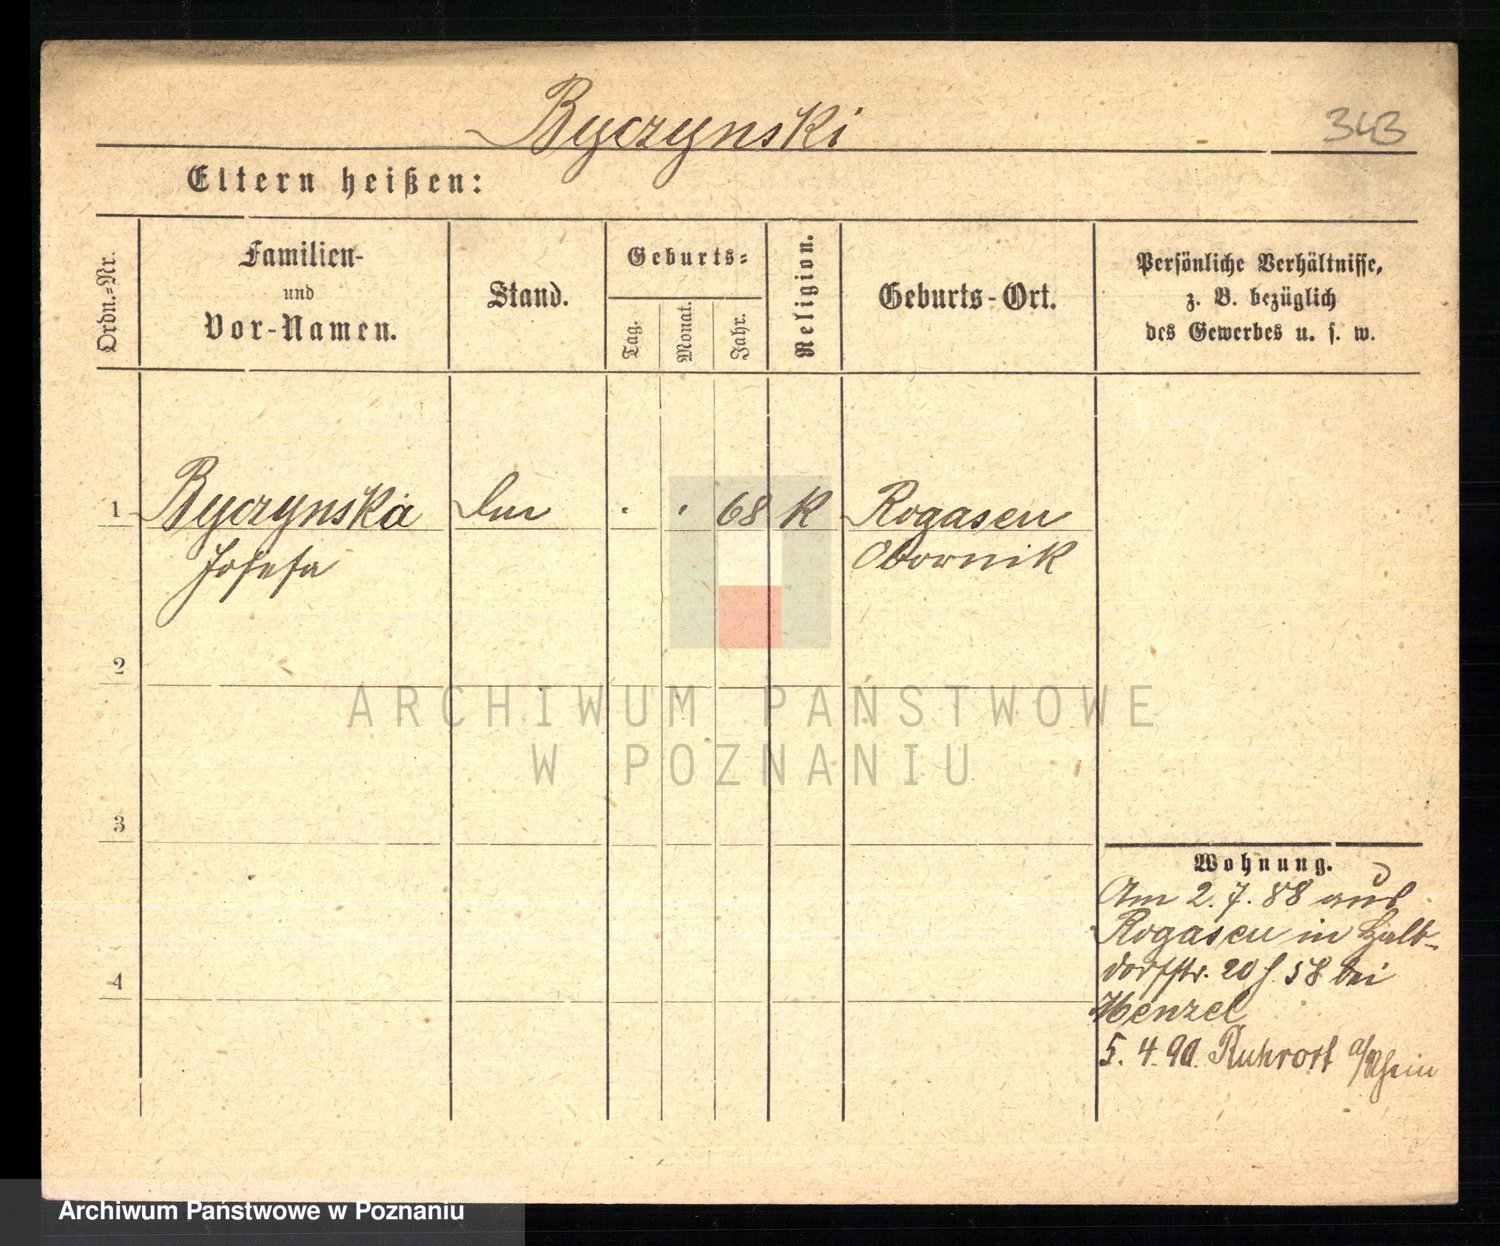 Byczynski
343
Eltern heißen:
Ordn.-Nr.
Familien-
und
Vor-Namen.
Stand.
Geburts-
Tag.
Monat.
Jahr.
Religion.
Geburts-Ort.
Persönliche Verhältnisse,
z. B. bezüglich
des Gewerbes u. s. w.
1 Byczynska 68 K Rogasen
Josefa Obornik
2
3
4
Wohnung.
Am 2. 7. 88 aus
Rogasen in Halb-
dorfstr. 20 58 bei
Menzel
5. 4. 90. Ruhrort a/Rhein
ARCHIWUM PAŃSTWOWE
W POZNANIU
Archiwum Państwowe w Poznaniu